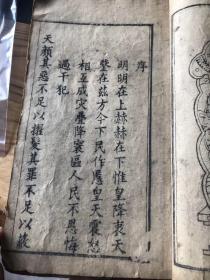 序
明明在上赫赫在下惟皇降衷天
鑒在茲方今下民作慝皇天震怒
相並咸灾疊降寰區人民不思悔
過干犯
天顏其惡不足以擢髮其罪不足以數